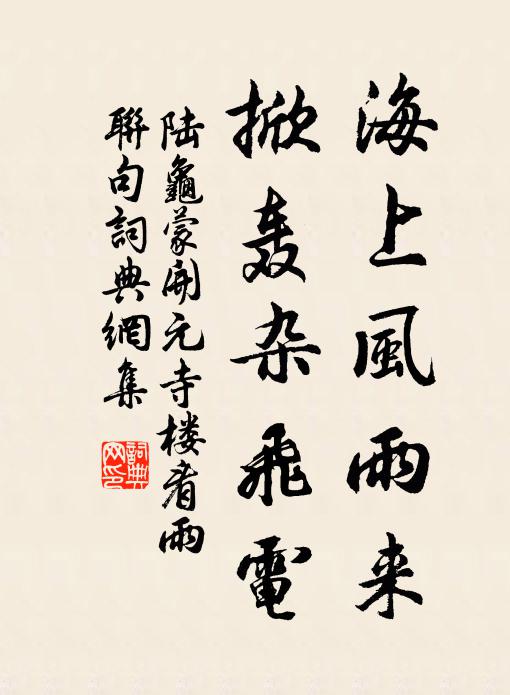 海上風雨来
掀轰杂飛電
陆龜蒙開元寺楼看雨
聯句詞典網集
詞典网印